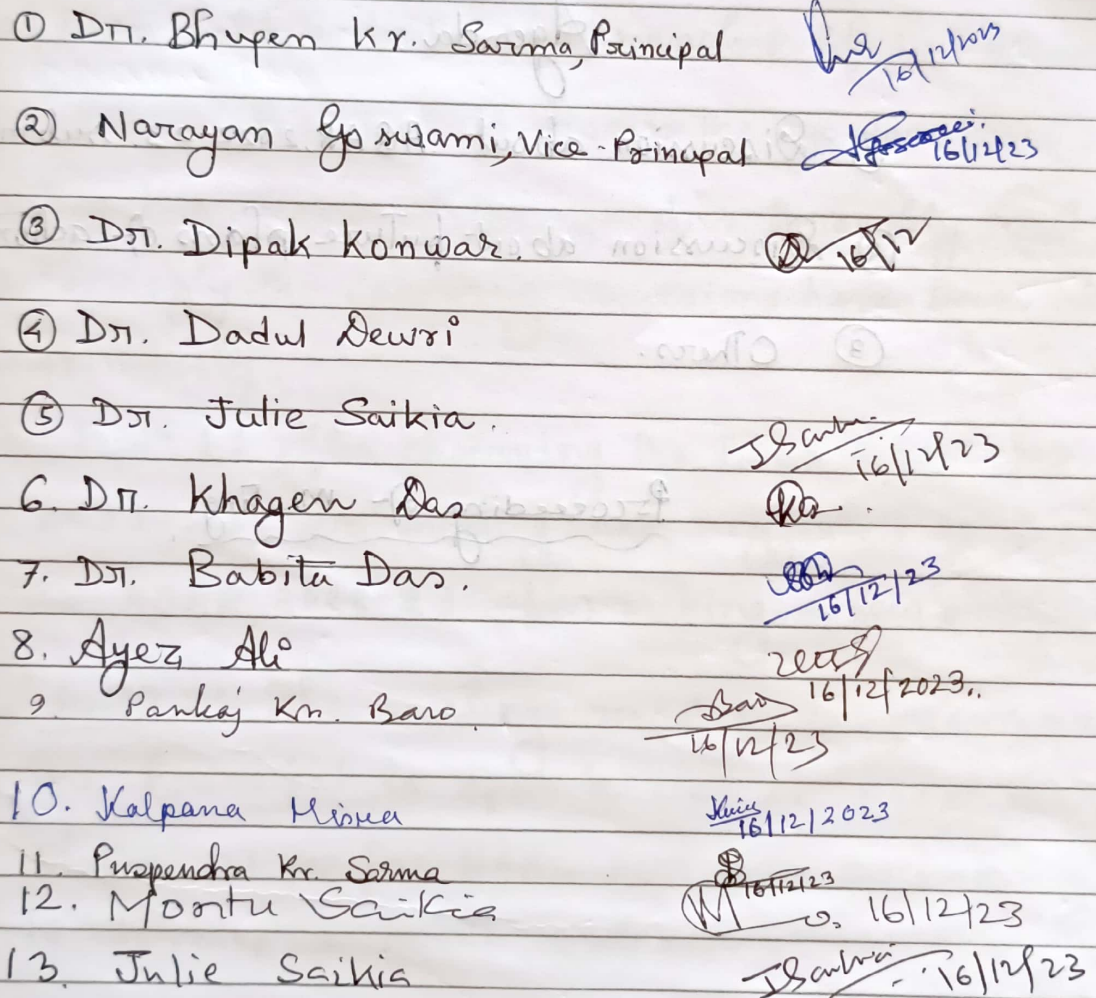 ① Dr. Bhupen Kr. Sarma, Principal 16/12/2023
② Narayan Goswami, Vice-Principal 16/12/23
③ Dr. Dipak Konwar. 16/12
④ Dr. Dadul Dewri
⑤ Dr. Julie Saikia. JSaikia 16/12/23
6. Dr. Khagen Das
7. Dr. Babita Das. 16/12/23
8. Ayez Ali 16/12/2023..
9. Pankaj Kr. Baro. Baro 16/12/23
10. Kalpana Misra 16/12/2023
11. Puspendra Kr. Sarma 16/12/23
12. Montu Saikia 16/12/23
13. Julie Saikia JSaikia 16/12/23